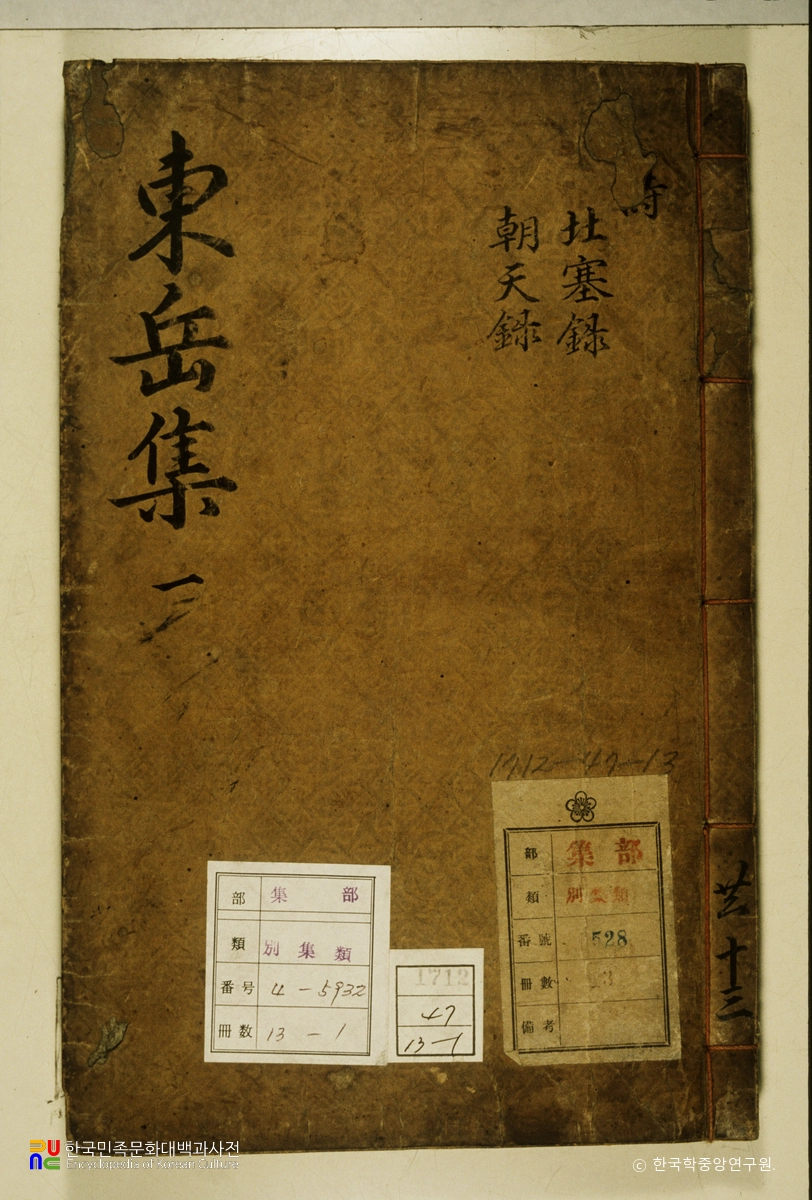 東岳集 一
詩
北塞録
朝天録
共十三
1712-47-13
部 集部
類 別集類
番號 528
冊數 13
備考
部 集部
類 別集類
番号 4-5932
冊数 13-1
1712
47
13-1
한국민족문화대백과사전
Encyclopedia of Korean Culture
ⓒ 한국학중앙연구원.